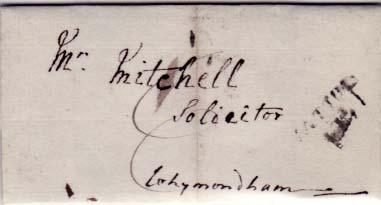 Mr. Mitchell
Solicitor
Whymondham